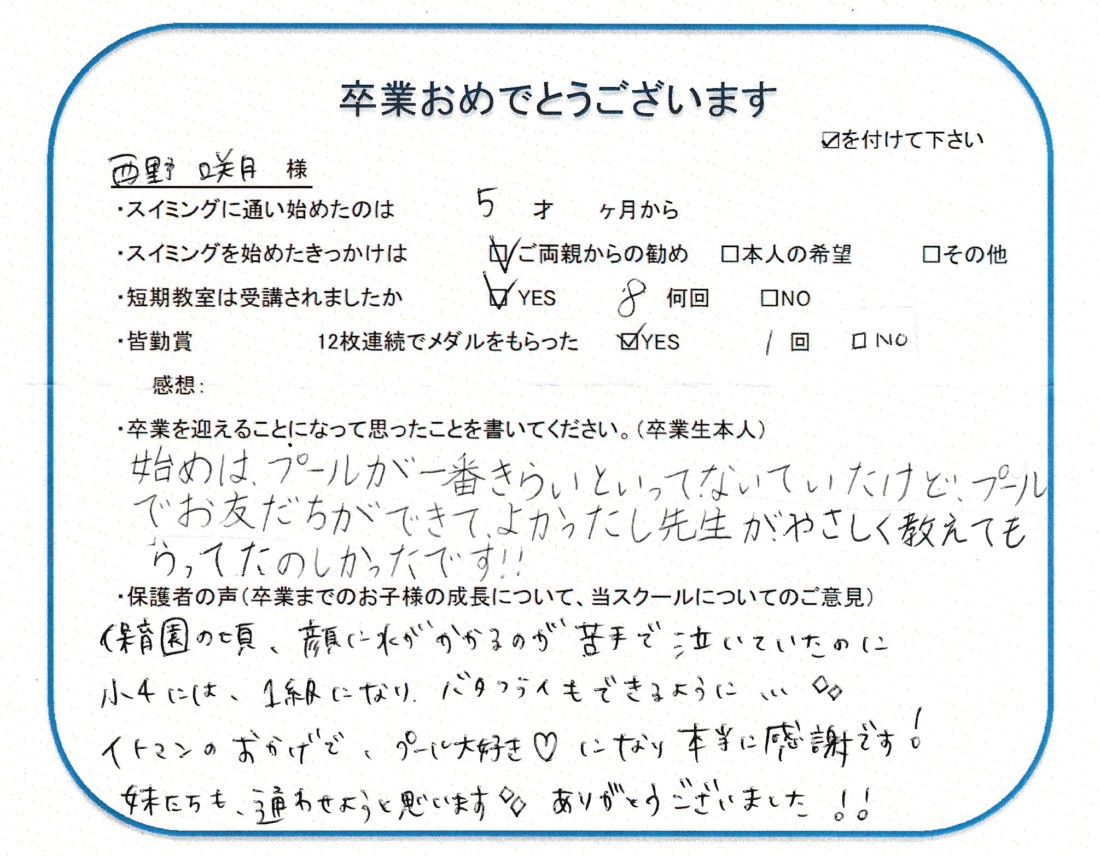 卒業おめでとうございます
☑を付けて下さい
西野 咲月 様
・スイミングに通い始めたのは 5 才 ヶ月から
・スイミングを始めたきっかけは ☑ご両親からの勧め □本人の希望 □その他
・短期教室は受講されましたか ☑YES 8 何回 □NO
・皆勤賞 12枚連続でメダルをもらった ☑YES 1 回 □NO
感想:
・卒業を迎えることになって思ったことを書いてください。(卒業生本人)
始めは、プールが一番きらいといってないていたけど、プール
でお友だちができて、よかったし先生がやさしく教えても
らってたのしかったです!!
・保護者の声(卒業までのお子様の成長について、当スクールについてのご意見)
保育園の頃、顔に水がかかるのが苦手で泣いていたのに
小4には、1級になり、バタフライもできるように…◇◇
イトマンのおかげで、プール大好き♡になり本当に感謝です!
妹たちも、通わせようと思います◇◇ ありがとうございました!!